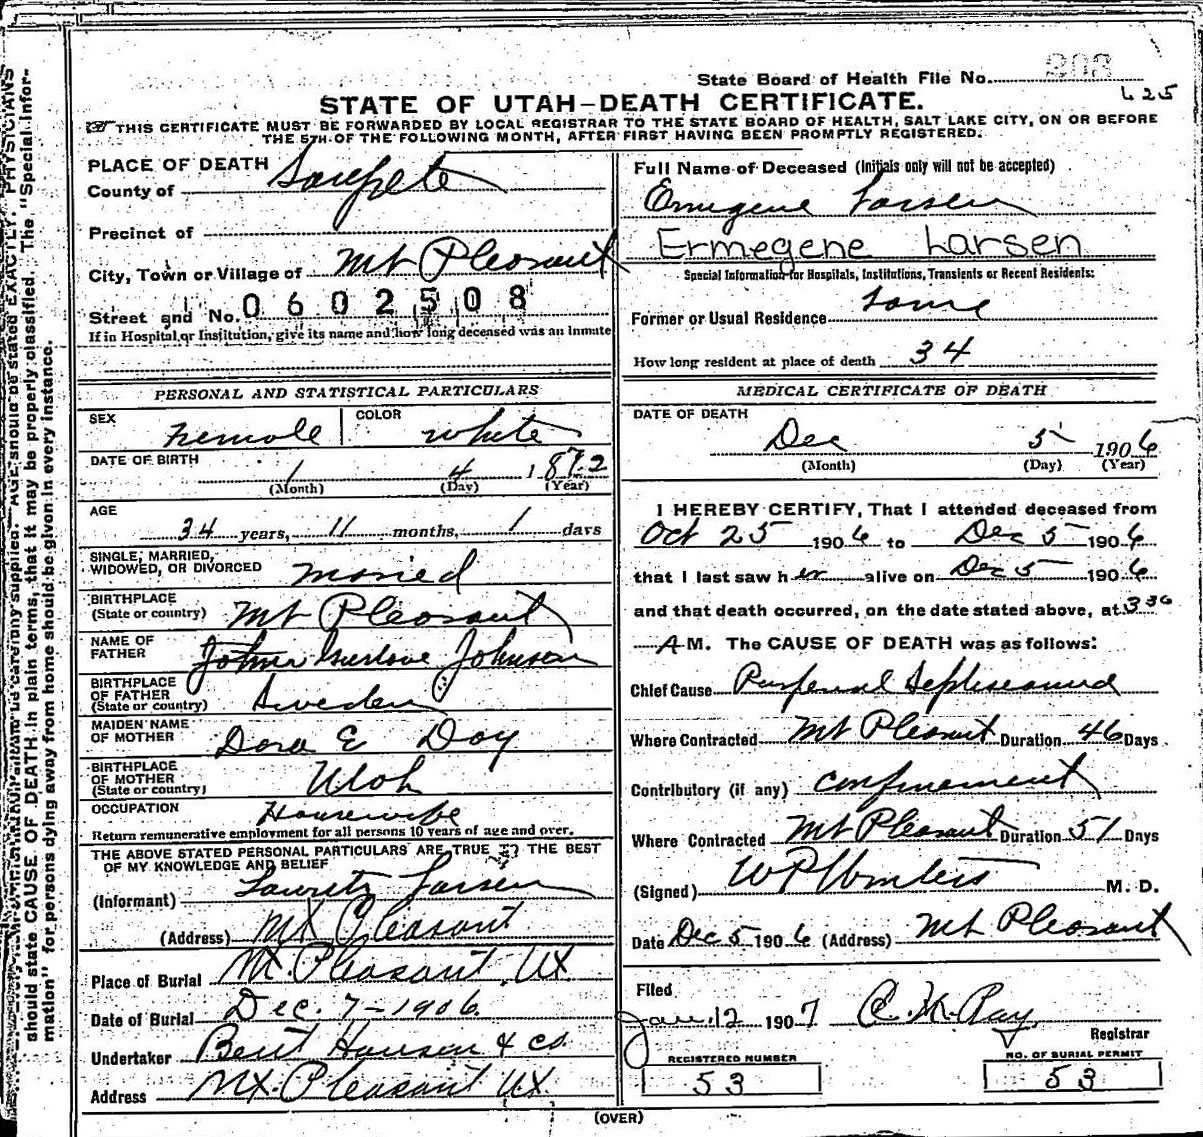 State Board of Health File No. 203
625
STATE OF UTAH—DEATH CERTIFICATE.
THIS CERTIFICATE MUST BE FORWARDED BY LOCAL REGISTRAR TO THE STATE BOARD OF HEALTH, SALT LAKE CITY, ON OR BEFORE
THE 5TH OF THE FOLLOWING MONTH, AFTER FIRST HAVING BEEN PROMPTLY REGISTERED.
PLACE OF DEATH
County of Sanpete
Precinct of
City, Town or Village of Mt Pleasant
Street and No. 0602508
If in Hospital or Institution, give its name and how long deceased was an inmate
Full Name of Deceased (Initials only will not be accepted)
Ermegene Larsen
Ermegene Larsen
Special Information for Hospitals, Institutions, Transients or Recent Residents:
Former or Usual Residence Same
How long resident at place of death 34
PERSONAL AND STATISTICAL PARTICULARS
SEX Female COLOR white
DATE OF BIRTH 1 4 1872
(Month) (Day) (Year)
AGE
34 years, 11 months, 1 days
SINGLE, MARRIED,
WIDOWED, OR DIVORCED Maried
BIRTHPLACE
(State or country) Mt Pleasant
NAME OF
FATHER Gustave Johnson
BIRTHPLACE
OF FATHER
(State or country) Sweden
MAIDEN NAME
OF MOTHER Dora E Day
BIRTHPLACE
OF MOTHER
(State or country) Utah
OCCUPATION Housewife
Return remunerative employment for all persons 10 years of age and over.
THE ABOVE STATED PERSONAL PARTICULARS ARE TRUE TO THE BEST
OF MY KNOWLEDGE AND BELIEF
(Informant) Lauritz Larsen
(Address) Mt Pleasant
Place of Burial Mt. Pleasant, Ut
Date of Burial Dec. 7-1906.
Undertaker Bent Hansen & Co.
Address Mt. Pleasant Ut.
MEDICAL CERTIFICATE OF DEATH
DATE OF DEATH
Dec 5 1906
(Month) (Day) (Year)
I HEREBY CERTIFY, That I attended deceased from
Oct 25 1906 to Dec 5 1906
that I last saw her alive on Dec 5 1906
and that death occurred, on the date stated above, at 3 30
A M. The CAUSE OF DEATH was as follows:
Chief Cause
Where Contracted Mt Pleasant Duration 46 Days
Contributory (if any) confinement
Where Contracted Mt Pleasant Duration 51 Days
(Signed) M. D.
Date Dec 5 1906 (Address) Mt Pleasant
Filed
Jan. 12 1907
Registrar
REGISTERED NUMBER
53
NO. OF BURIAL PERMIT
53
(OVER)
should state CAUSE OF DEATH in plain terms, that it may be properly classified. The "Special Infor-
mation" for persons dying away from home should be given in every instance.